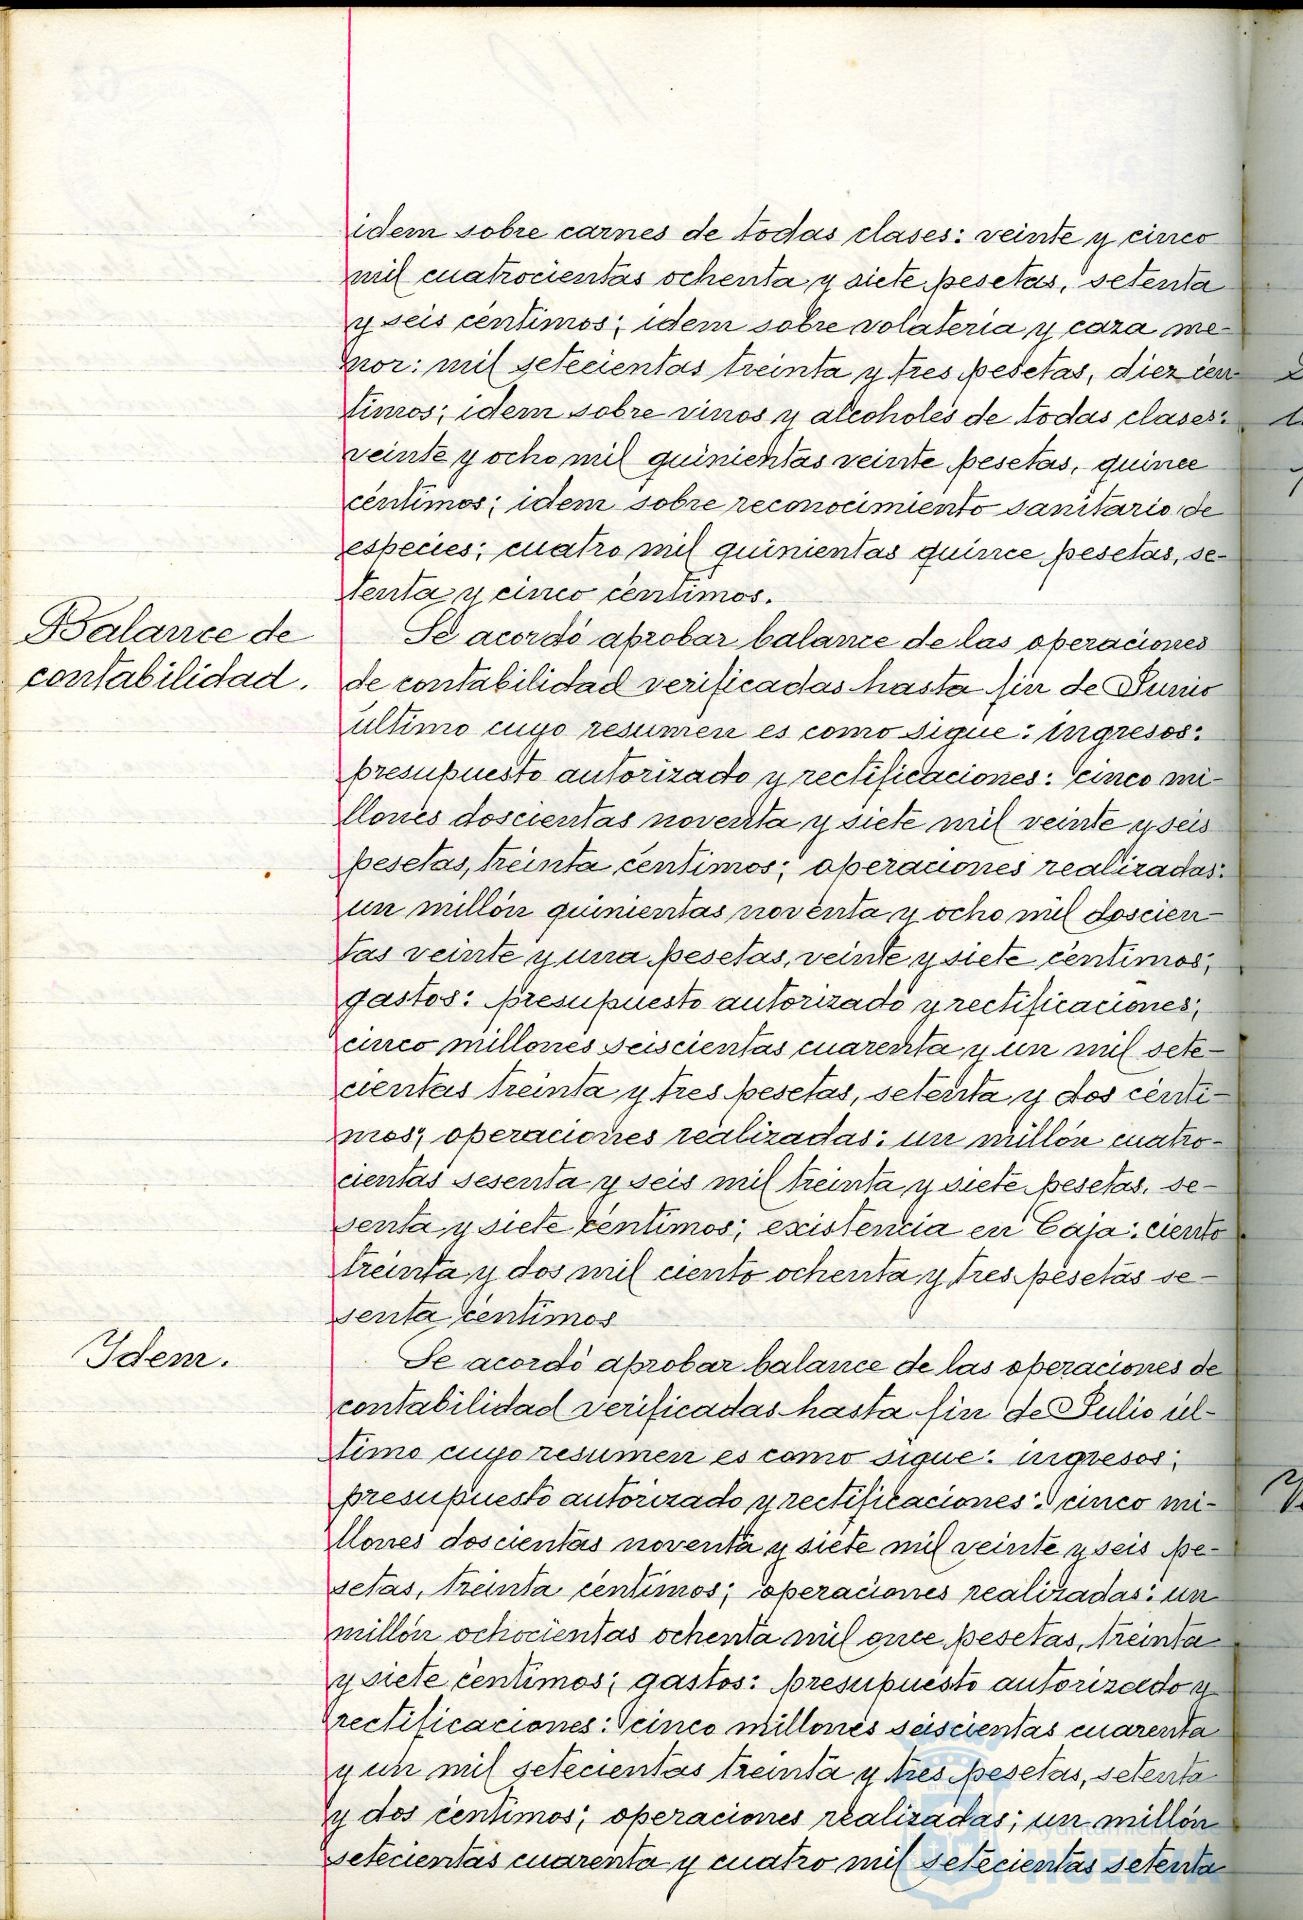 idem sobre carnes de todas clases: veinte y cinco
mil cuatrocientas ochenta y siete pesetas, setenta
y seis céntimos; idem sobre volateria y caza me-
nor: mil setecientas treinta y tres pesetas, diez cén-
timos; idem sobre vinos y alcoholes de todas clases:
veinte y ocho mil quinientas veinte pesetas, quince
céntimos; idem sobre reconocimiento sanitario de
especies; cuatro mil quinientas quince pesetas, se-
tenta y cinco céntimos.
Balance de
contabilidad.
Se acordó aprobar balance de las operaciones
de contabilidad verificadas hasta fin de Junio
último cuyo resumen es como sigue: ingresos:
presupuesto autorizado y rectificaciones: cinco mi-
llones doscientas noventa y siete mil veinte y seis
pesetas, treinta céntimos; operaciones realizadas:
un millón quinientas noventa y ocho mil doscien-
tas veinte y una pesetas, veinte y siete céntimos;
gastos: presupuesto autorizado y rectificaciones;
cinco millones seiscientas cuarenta y un mil sete-
cientas treinta y tres pesetas, setenta y dos cénti-
mos; operaciones realizadas: un millón cuatro-
cientas sesenta y seis mil treinta y siete pesetas, se-
senta y siete céntimos; existencia en Caja: ciento
treinta y dos mil ciento ochenta y tres pesetas se-
senta céntimos
Idem.
Se acordó aprobar balance de las operaciones de
contabilidad verificadas hasta fin de Julio úl-
timo cuyo resumen es como sigue: ingresos;
presupuesto autorizado y rectificaciones: cinco mi-
llones doscientas noventa y siete mil veinte y seis pe-
setas, treinta céntimos; operaciones realizadas: un
millón ochocientas ochenta mil once pesetas, treinta
y siete céntimos; gastos: presupuesto autorizado y
rectificaciones: cinco millones seiscientas cuarenta
y un mil setecientas treinta y tres pesetas, setenta
y dos céntimos; operaciones realizadas; un millón
setecientas cuarenta y cuatro mil setecientas setenta